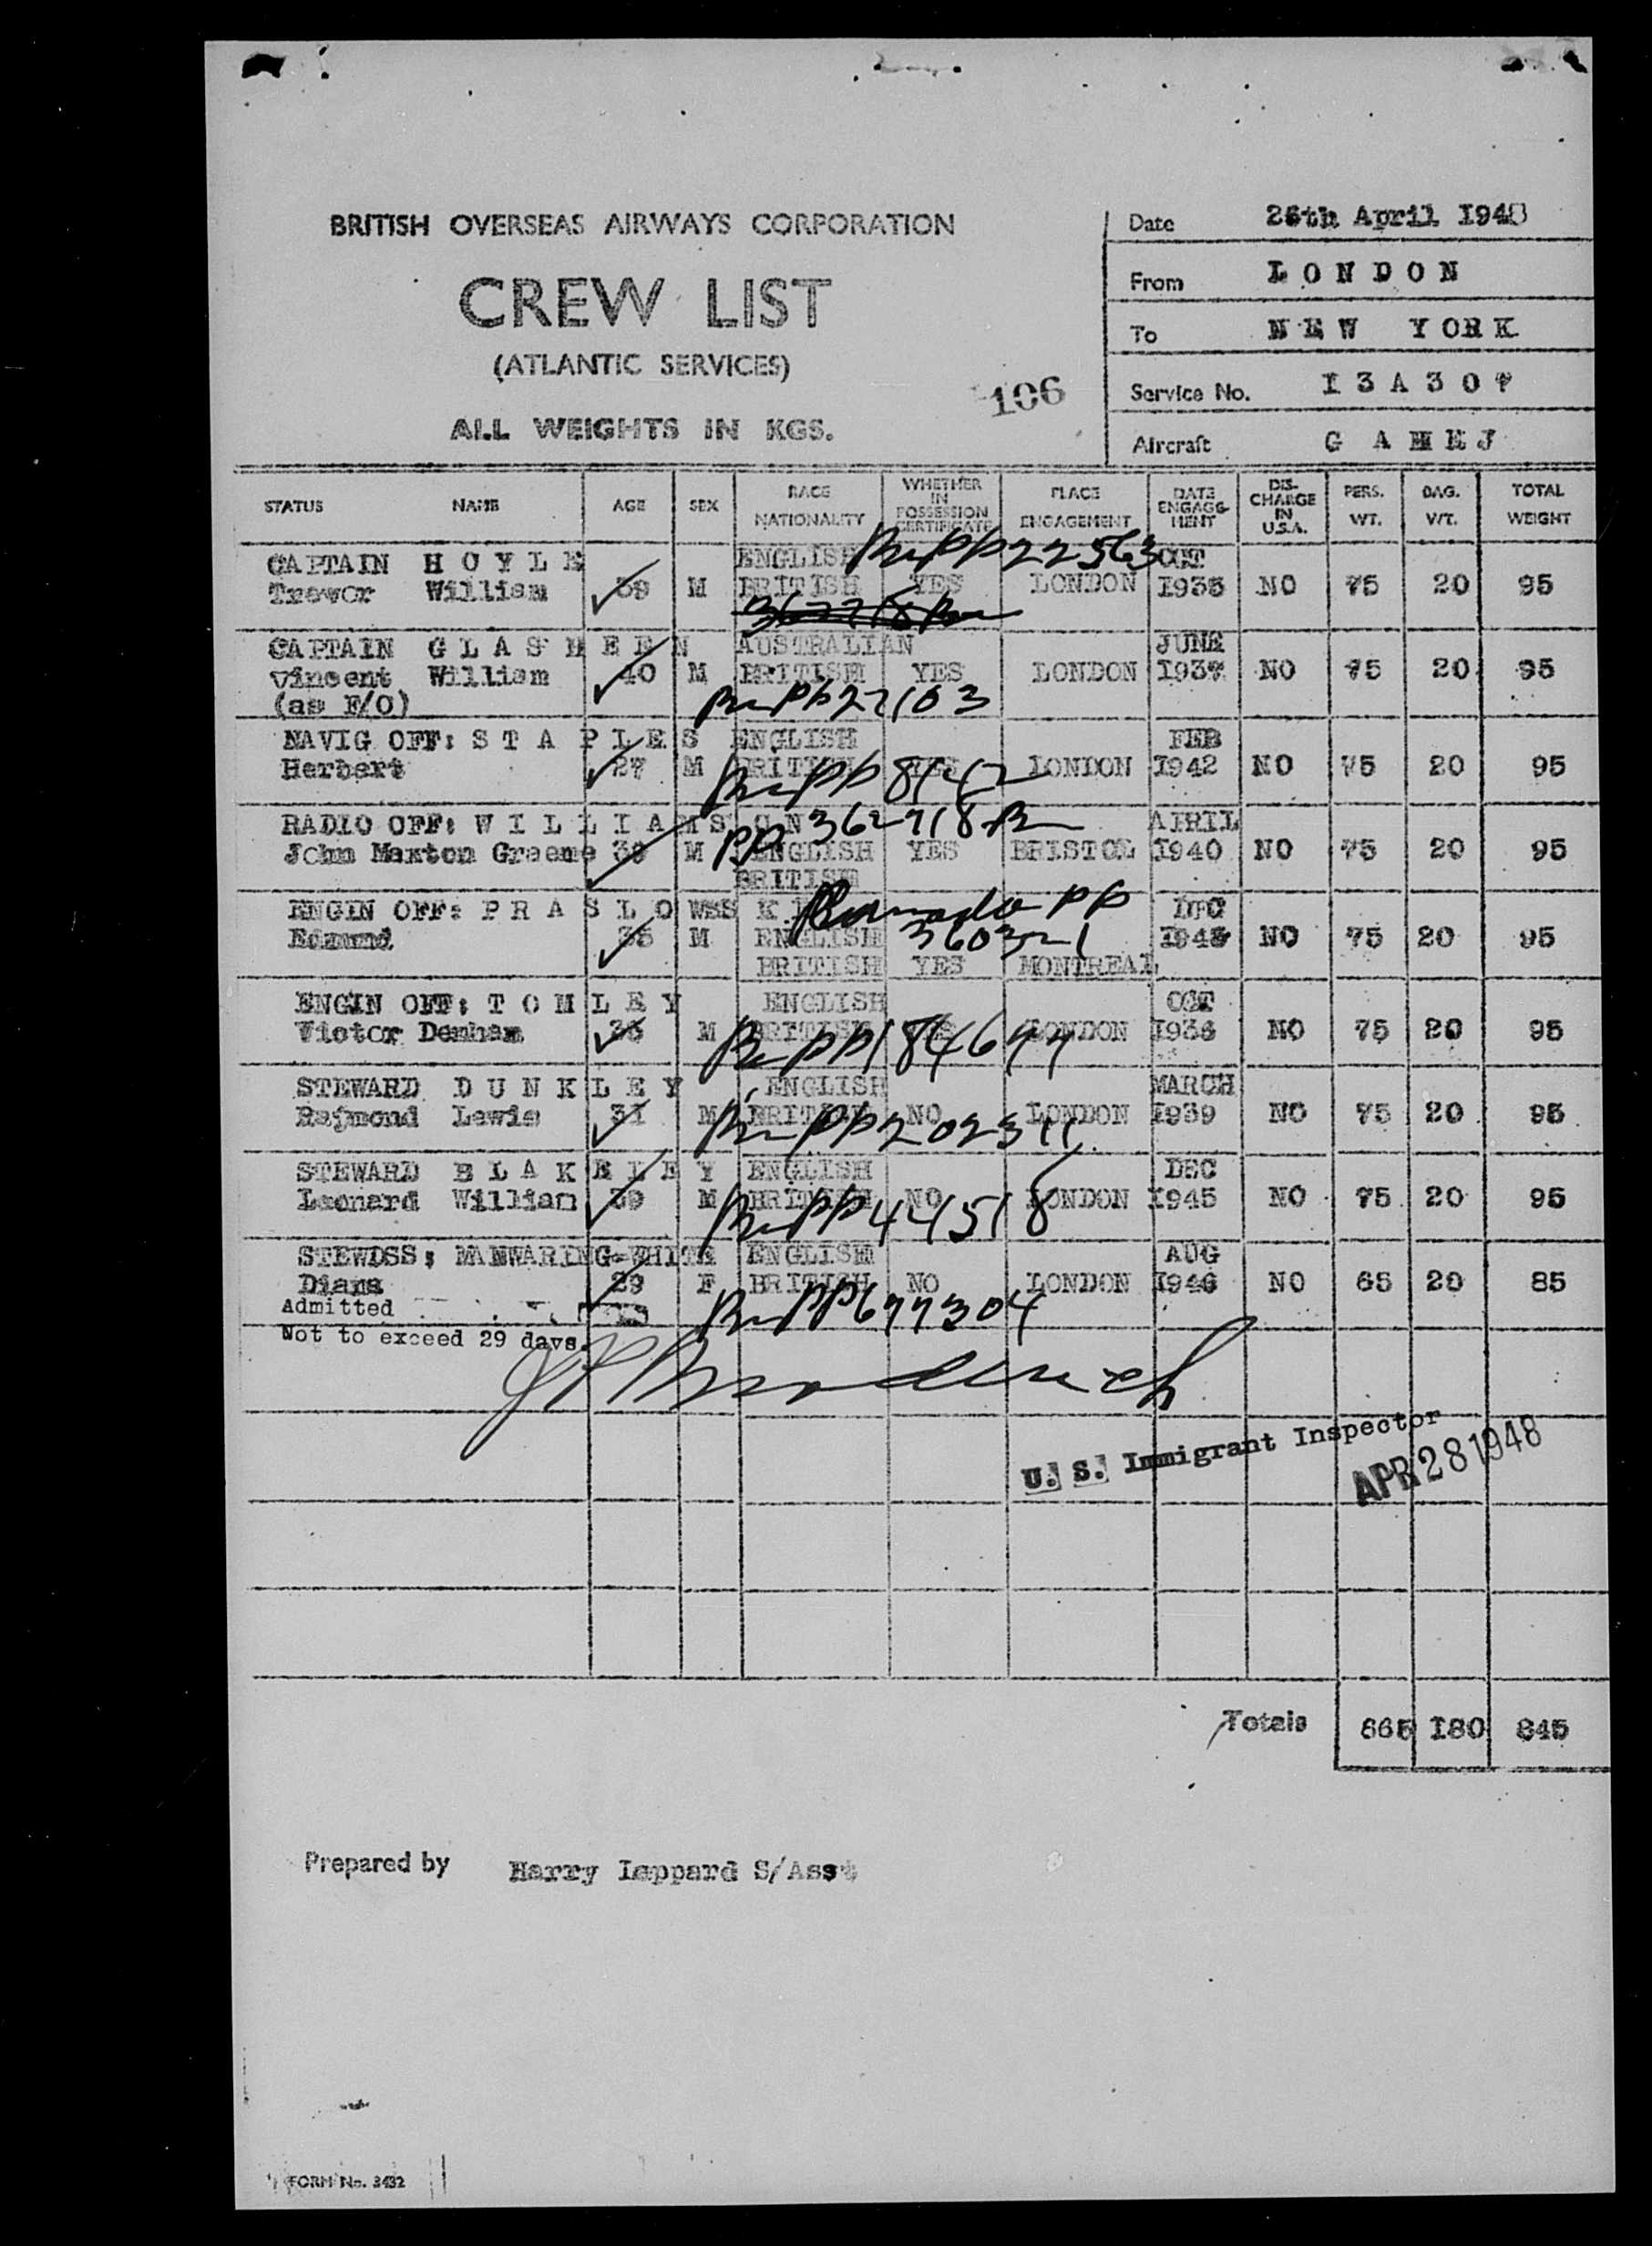 BRITISH OVERSEAS AIRWAYS CORPORATION
CREW LIST
(ATLANTIC SERVICES)
ALL WEIGHTS IN KGS.
106
Date 26th April 1948
From LONDON
To NEW YORK
Service No. I3A307
Aircraft G AHEJ
STATUS NAME AGE SEX RACE NATIONALITY WHETHER IN POSSESSION CERTIFICATE PLACE ENGAGEMENT DATE ENGAGEMENT DISCHARGE IN U.S.A. PERS. WT. BAG. WT. TOTAL WEIGHT
CAPTAIN H O Y L E ENGLISH Br PP 22563 OCT
Trevor William 39 M BRITISH YES LONDON NO 75 20 95
CAPTAIN G L A S H E E N AUSTRALIAN JUNE
Vincent William 40 M BRITISH YES LONDON 1937 NO 75 20 95
(as F/O)
NAVIG OFF: S T A P L E S ENGLISH FEB
Herbert 27 M BRITISH YES LONDON 1942 NO 75 20 95
RADIO OFF: W I L L I A M S O N PP 362718 Br APRIL
John Maxton Greene 39 M ENGLISH YES BRISTOL 1940 NO 75 20 95
BRITISH
ENGIN OFF: P R A S L O W S K I Canada PP DEC
Edmund 35 M ENGLISH 360321 NO 75 20 95
BRITISH YES MONTREAL
ENGIN OFF: T O M L E Y ENGLISH OCT
Victor Denham M BRITISH LONDON 1936 NO 75 20 95
Br PP 184644
STEWARD D U N K L E Y ENGLISH MARCH
Raymond Lewis 31 M BRITISH NO LONDON 1939 NO 75 20 95
Br PP 202311
STEWARD B L A K E L E Y ENGLISH DEC
Leonard William 39 M BRITISH NO LONDON 1945 NO 75 20 95
Br PP 44518
STEWDSS: MANWARING-WHITE ENGLISH AUG
Diana 29 F BRITISH NO LONDON 1946 NO 65 20 85
Br PP 677304
Admitted
Not to exceed 29 days.
U. S. Immigrant Inspector
APR 28 1948
Totals 665 180 845
Prepared by Harry Leppard S/Asst
FORM No. 3432